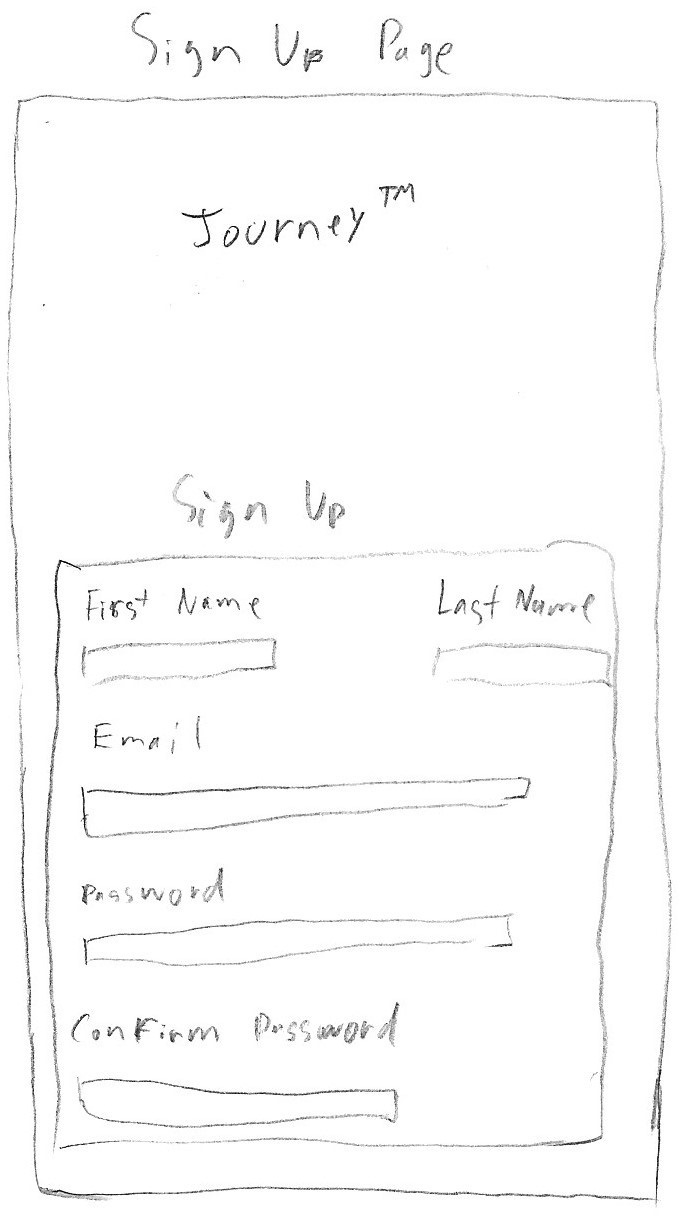 Sign Up Page
Journey™
Sign Up
First Name Last Name
Email
Password
Confirm Password